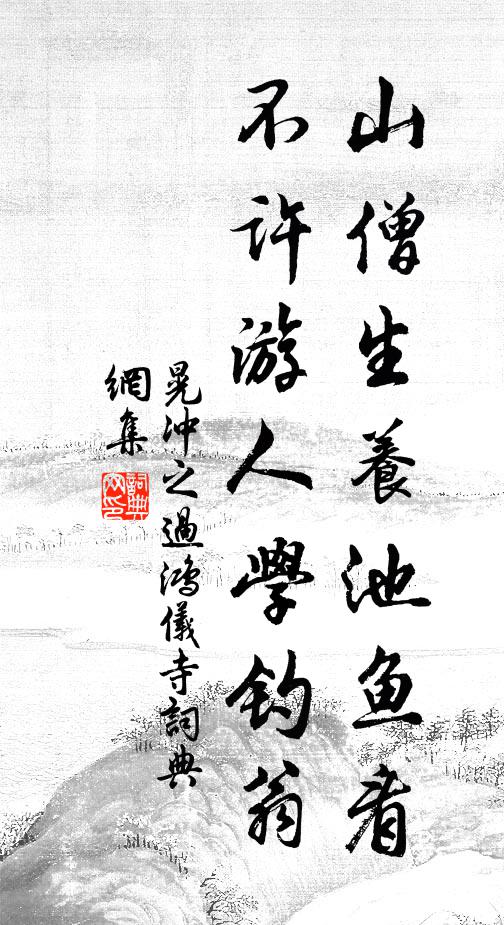 山僧生養池魚看
不許游人學釣翁
晁沖之過鴻儀寺詞典
網集
詞典網印